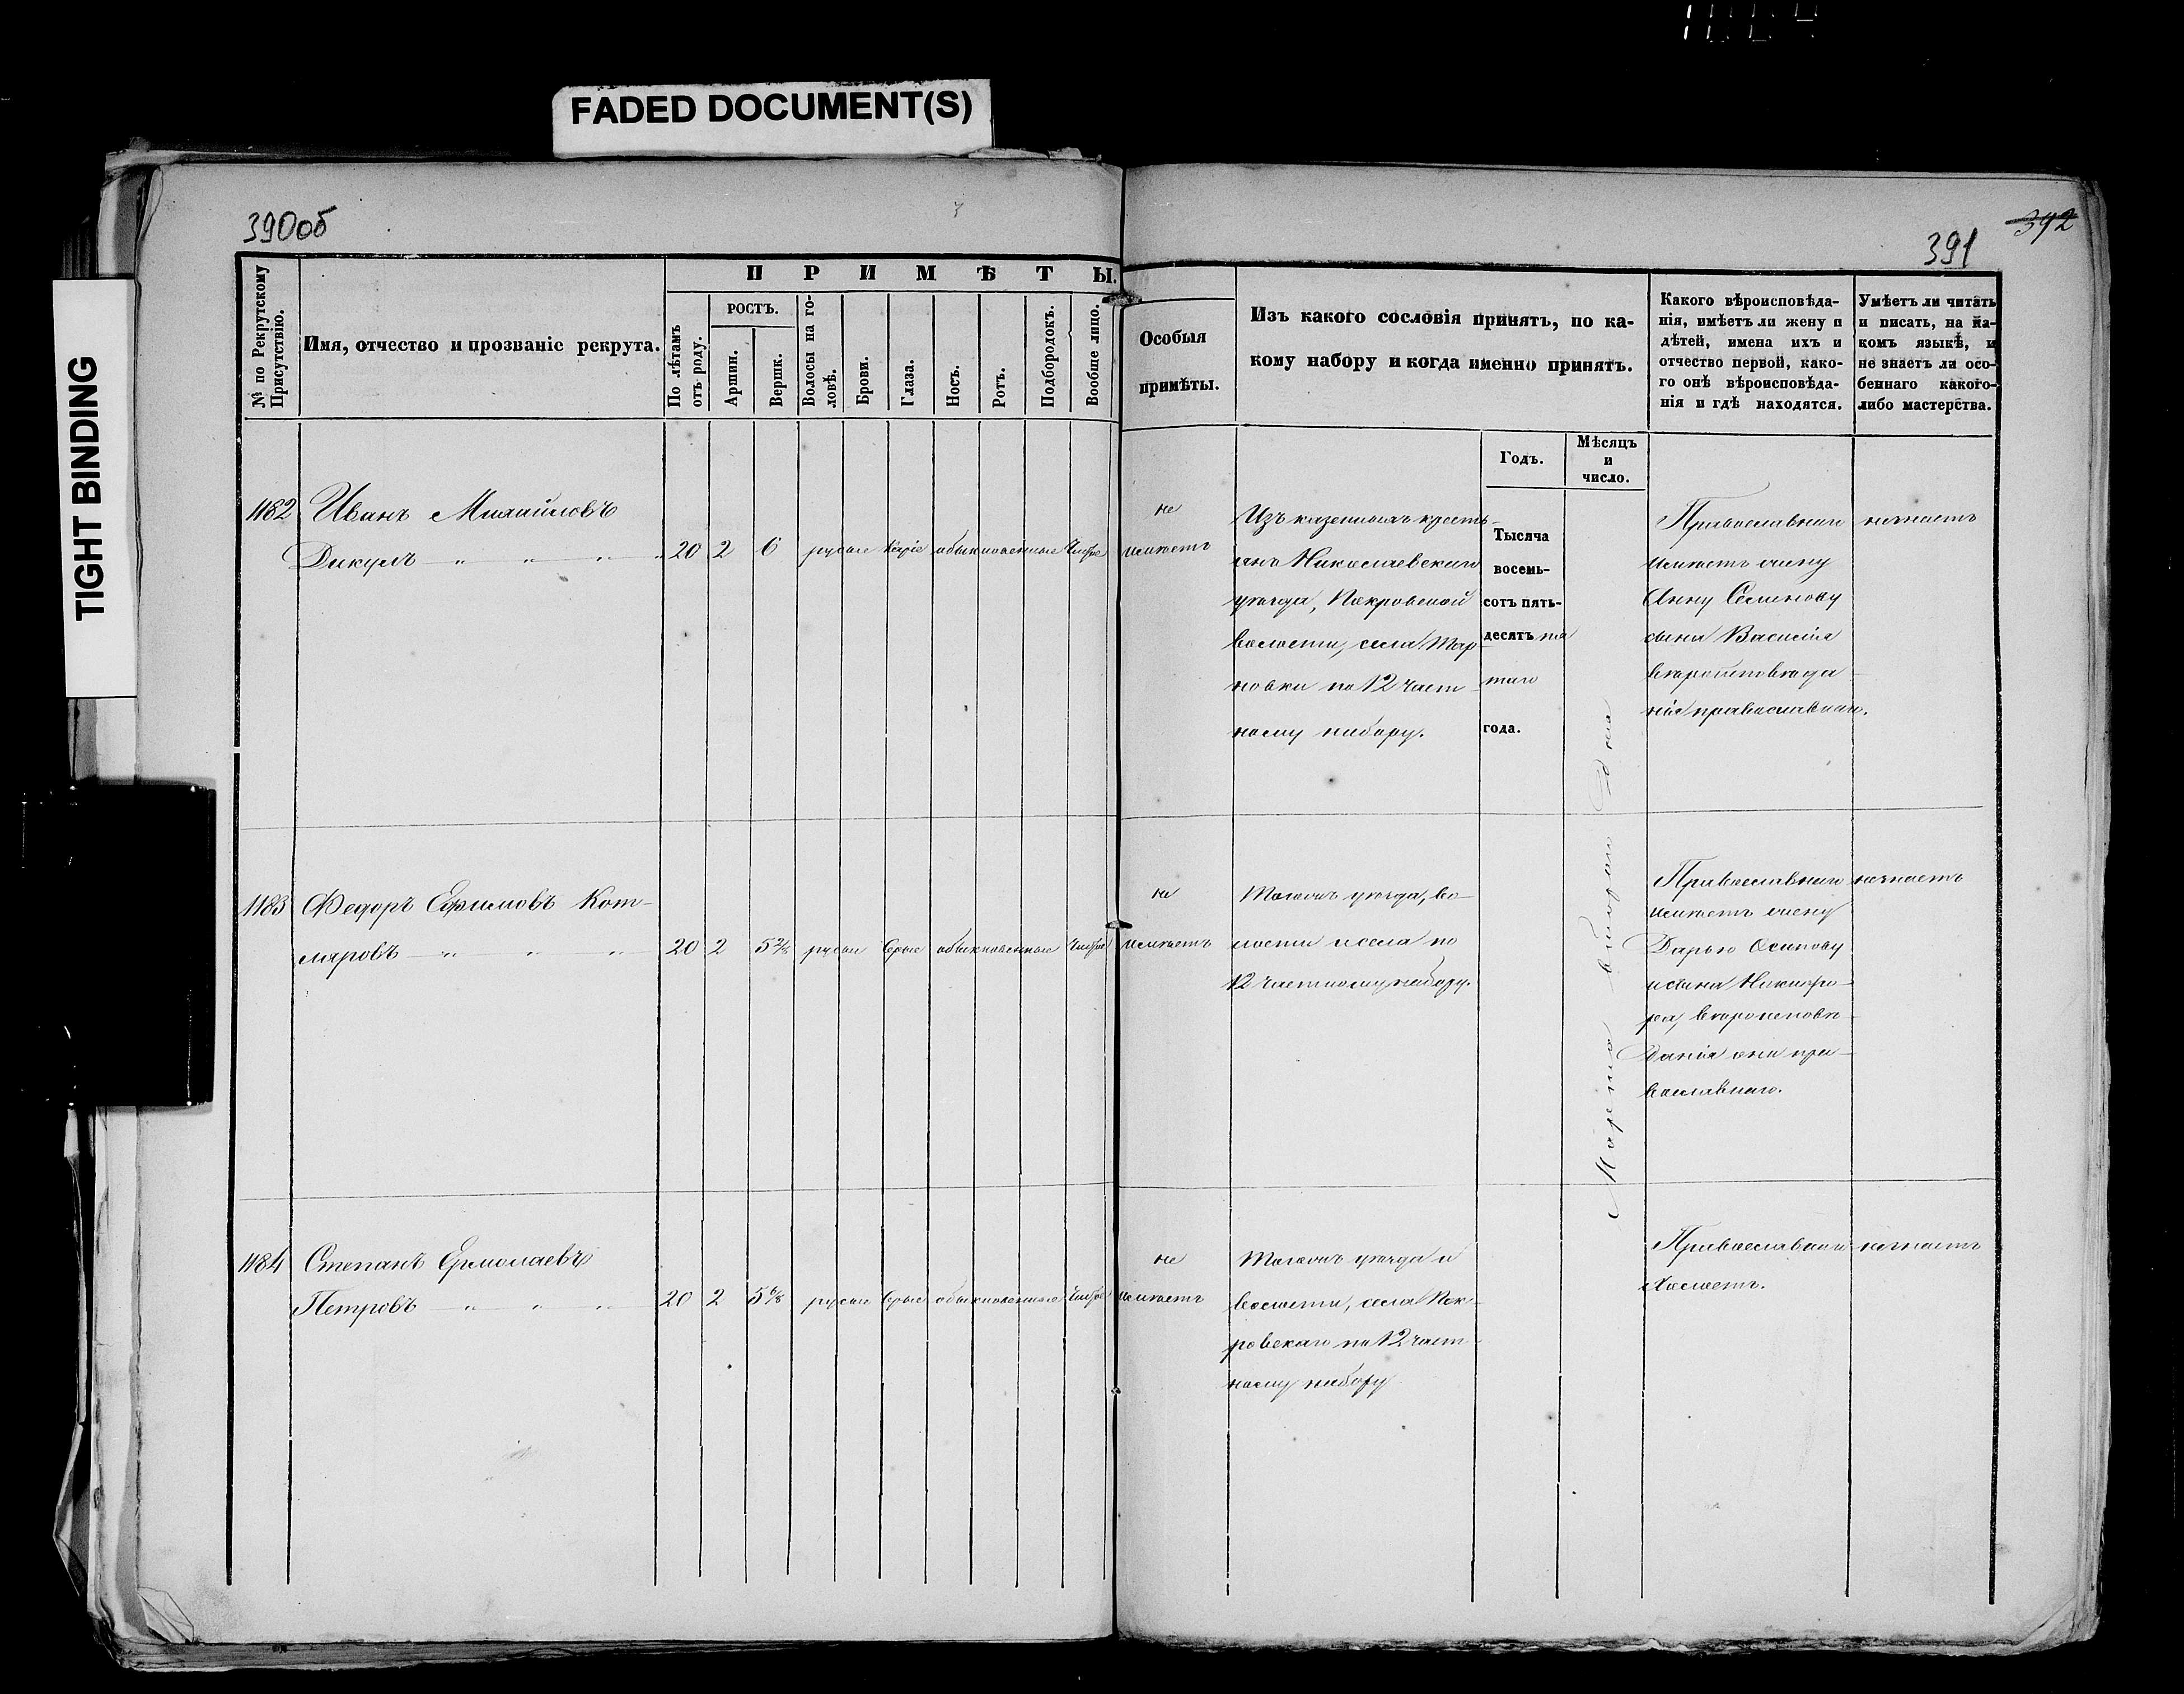 FADED DOCUMENT(S)
TIGHT BINDING
390об
391
392
№ по Рекрутскому Присутствію.
Имя, отчество и прозваніе рекрута.
ПРИМѢТЫ.
По лѣтамъ отъ роду.
РОСТЪ.
Аршин.
Вершк.
Волосы на го-
ловѣ.
Брови.
Глаза.
Носъ.
Ротъ.
Подбородокъ.
Вообще лицо.
Особыя
примѣты.
Изъ какого сословія принятъ, по ка-
кому набору и когда именно принятъ.
Годъ.
Мѣсяцъ
и
число.
Какого вѣроисповѣда-
нія, имѣетъ ли жену и
дѣтей, имена ихъ и
отчество первой, како-
го онѣ вѣроисповѣда-
нія и гдѣ находятся.
Умѣетъ ли читать
и писать, на ка-
комъ языкѣ, и
не знаетъ ли осо-
беннаго какого-
либо мастерства.
1182
Иванъ Михайловъ
Дикулъ
20 2 6 русые Каріе обыкновенные Чистое
не
имѣетъ
Изъ казенныхъ кресть-
янъ Николаевскаго
уѣзда, Покровской
волости, села Тар-
новки по 12 част-
ному набору.
Тысяча
восемь-
сотъ пять-
десятъ пя
таго
года.
Марта втораго дня
Православнаго
имѣетъ жену
Анну Семенову
сына Василія
вѣроисповѣда-
нія православнаго.
незнаетъ
1183
Федоръ Ефимовъ Кот-
ляровъ
20 2 5 2/8 русые Серые обыкновенные Чистое
не
имѣетъ
Тогожъ уѣзда, во-
лости и села по
12 частному набору.
Православнаго
имѣетъ жену
Дарью Осипову
и сына Никифо-
ра, вѣроисповѣ-
данія они пра-
вославнаго.
незнаетъ
1184
Степанъ Ермолаевъ
Петровъ
20 2 5 6/8 русые Серые обыкновенные Чистое
не
имѣетъ
Тогожъ уѣзда и
волости, села Пок-
ровскаго по 12 част-
ному набору
Православнаго
Холостъ.
незнаетъ